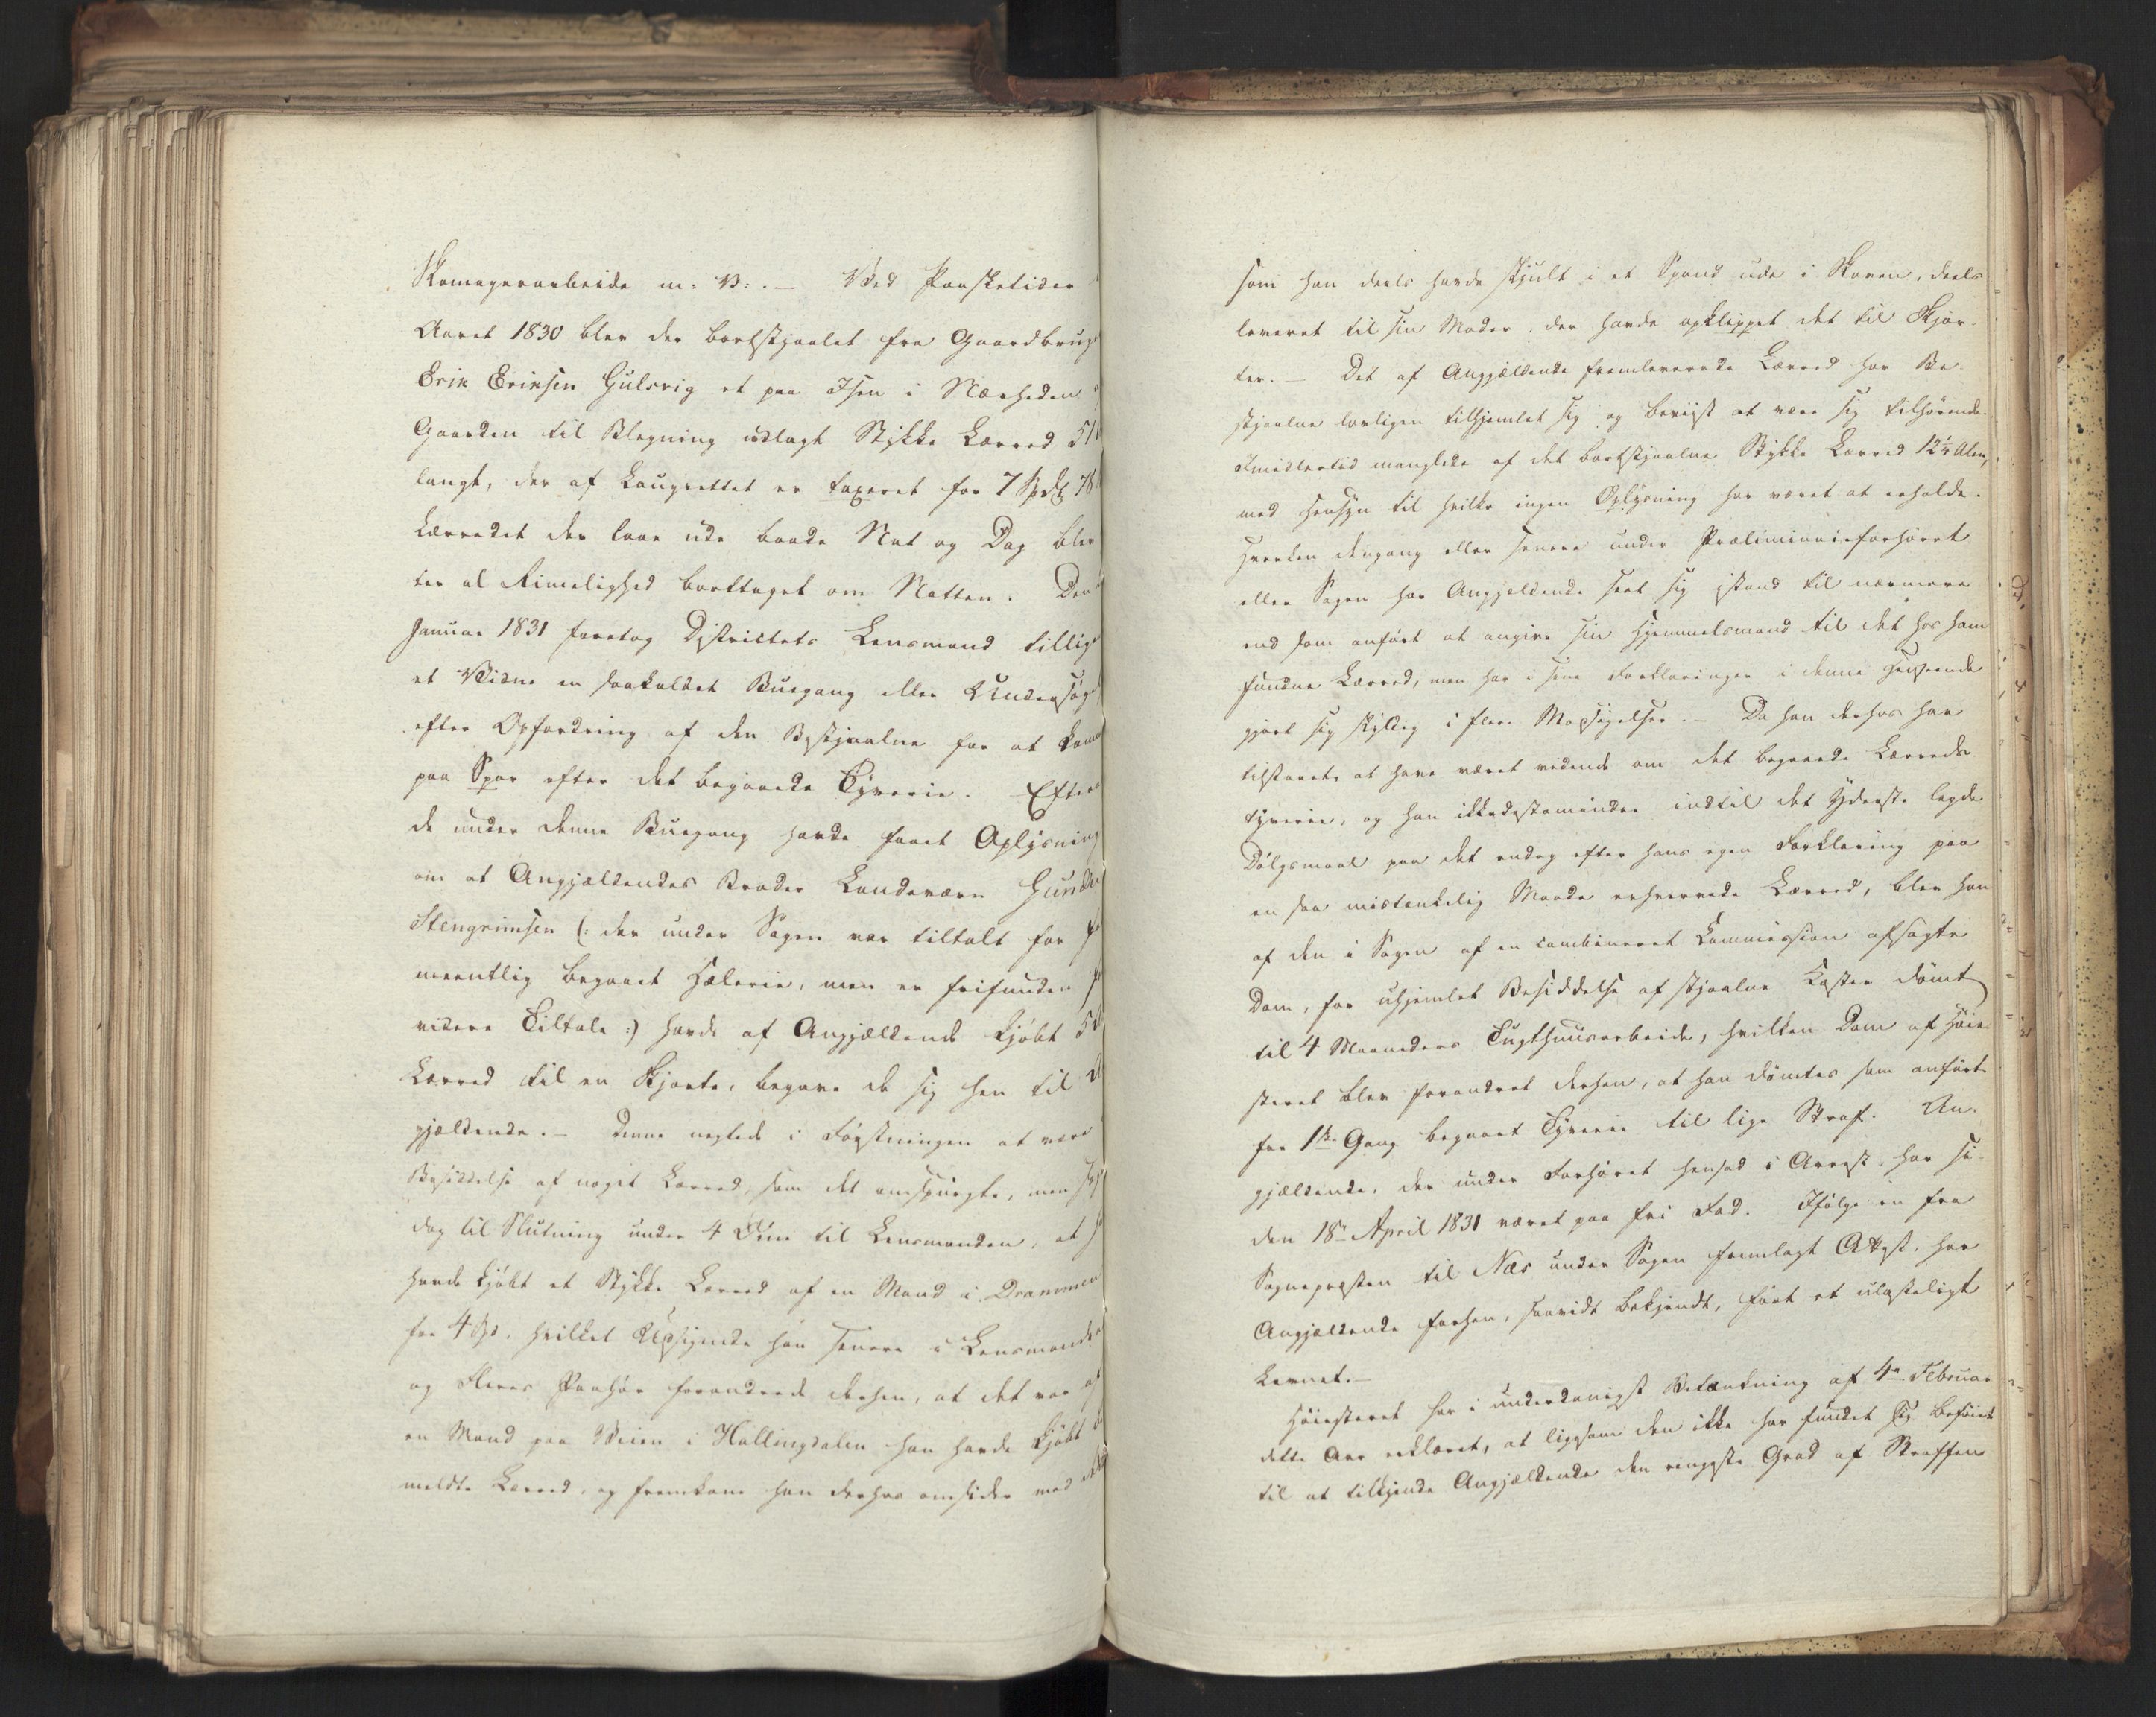 Skomagerarbeide m: V:. — Ved Paasketider
Aaret 1830 blev der bortstjaalet fra Gaardbrug
Erik Eriksen Gulsvig et paa Isen i Nærheden
Gaarden til Blegning udlagt Stykke Lærred 51
langt, der af Laugrettet er taxeret for 7 Spd 78
Lærredet der laae ude baade Nat og Dag blev
ter al Rimelighed borttaget om Natten. Den
Januar 1831 foretog Districtets Lensmand tillige
et Vidne en saakaldet Buegang eller Undersøg
efter Opfordring af den Bestjaalne for at kom
paa Spor efter det begaaede Tyverie. Efter
de under denne Buegang havde faaet Oplysning
om at Angjældendes Broder Landeværn Gunder
Stengrimsen (: der under Sagen var tiltalt for
meentlig begaaet Hælerie, men er frifunden f
videre Tiltale :) havde af Angjældende kjøbt 5
Lærred til en Skjorte, begave de sig hen til
gjældende. — Denne negtede i Førstningen at være
Besiddelse af noget Lærred, som det omspurgte, men
dog til Slutning under 4 Øine til Lensmanden, at
havde kjøbt et Stykke Lærred af en Mand i Drammen
for 4 Spd, hvilket Udsigende han senere i Lensmandens
og Fleres Paahør forandrede derhen, at det var af
en Mand paa Veien i Hallingdalen han havde kjøbt
meldte Lærred, og fremkom han derhos omsider med
som han deels havde skjult i et Spand ude i Skoven, deels
leveret til sin Moder, der havde opklippet det til Skjor-
ter. — Det af Angjældende fremleverede Lærred har Be-
stjaalne lovligen tilhjemlet sig og beviist at være sig tilhørende.
Imidlertid manglede af det bortstjaalne Stykke Lærred 12¼ Alen,
med Hensyn til hvilke ingen Oplysning har været at erholde.
Hverken dengang eller senere under Præliminairforhøret
eller Sagen har Angjældende seet sig istand til nærmere
end som anført at angive sin Hjemmelsmand til det hos ham
fundne Lærred, men har i sine Forklaringer i denne Henseende
gjort sig skyldig i flere Modsigelser. — Da han derhos har
tilstaaet, at have været vidende om det begaaede Lærreds-
tyverie, og han ikkedestomindre indtil det Yderste lagde
Dølgsmaal paa det endog efter hans egen Forklaring paa
en saa mistænkelig Maade erhvervede Lærred, blev han
af den i Sagen af en combineret Kommission afsagte
Dom, for uhjemlet Besiddelse af stjaalne Koster dømt
til 4 Maaneders Tugthuusarbeide, hvilken Dom af Høie-
steret blev forandret derhen, at han dømtes som anført
for 1ste Gang begaaet Tyverie til lige Straf. An-
gjældende, der under Forhøret hensad i Arrest, har si-
den 18de April 1831 været paa fri Fod. Ifølge en fra
Sognepræsten til Næs under Sagen fremlagt Attest, har
Angjældende forhen, saavidt bekjendt, ført et ulasteligt
Levnet. —
Høiesteret har i underdanigst Betænkning af 4de Februar
dette Aar erklæret, at ligesom den ikke har fundet sig beføiet
til at tilkjende Angjældende den ringeste Grad af Straffen